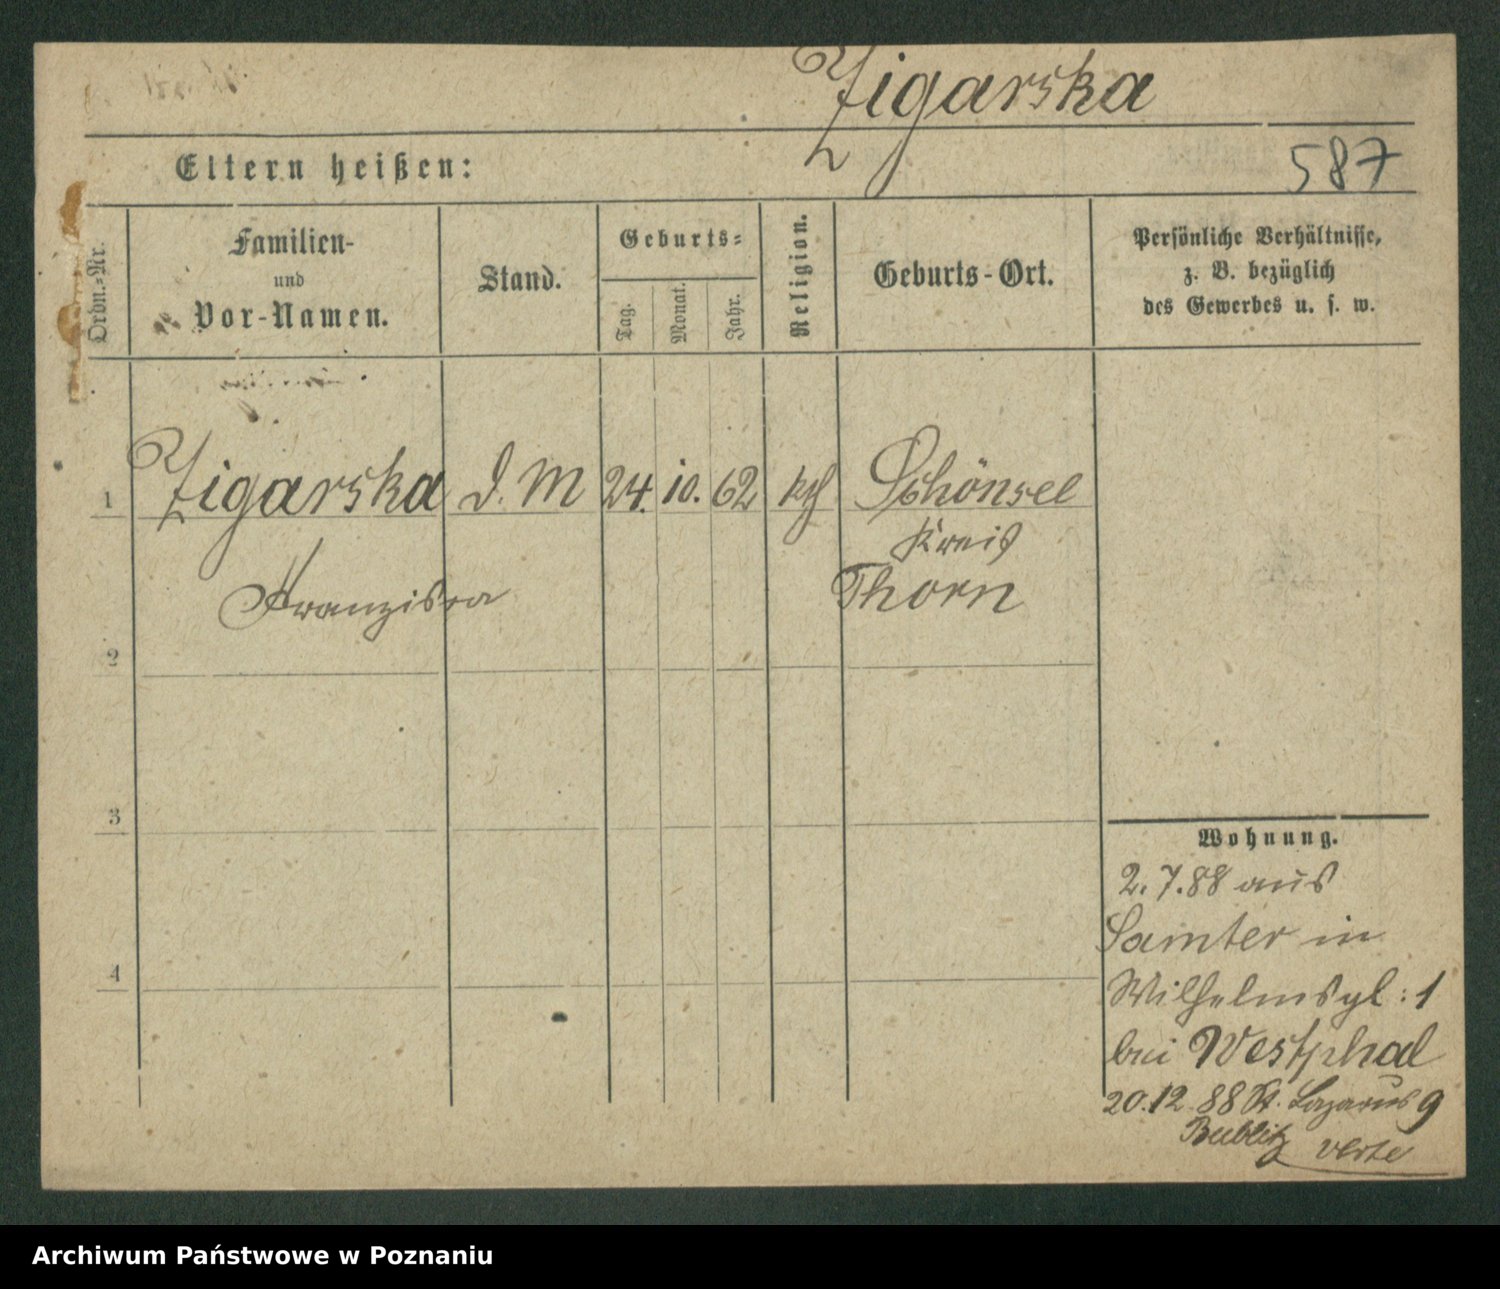 Zigarska
Eltern heißen:
587
Ordn.-Nr.
Familien-
und
Vor-Namen.
Stand.
Geburts-
Tag.
Monat.
Jahr.
Religion.
Geburts-Ort.
Persönliche Verhältnisse,
z. B. bezüglich
des Gewerbes u. s. w.
1 Zigarska d. M 24. 10. 62 kth Schönsee
Kreis
Franziska Thorn
2
3
4
Wohnung.
2. 7. 88 aus
Samter in
Wilhelmspl: 1
bei Westphal
20.12 88 St. Lazarus 9
Bublitz verte
Archiwum Państwowe w Poznaniu